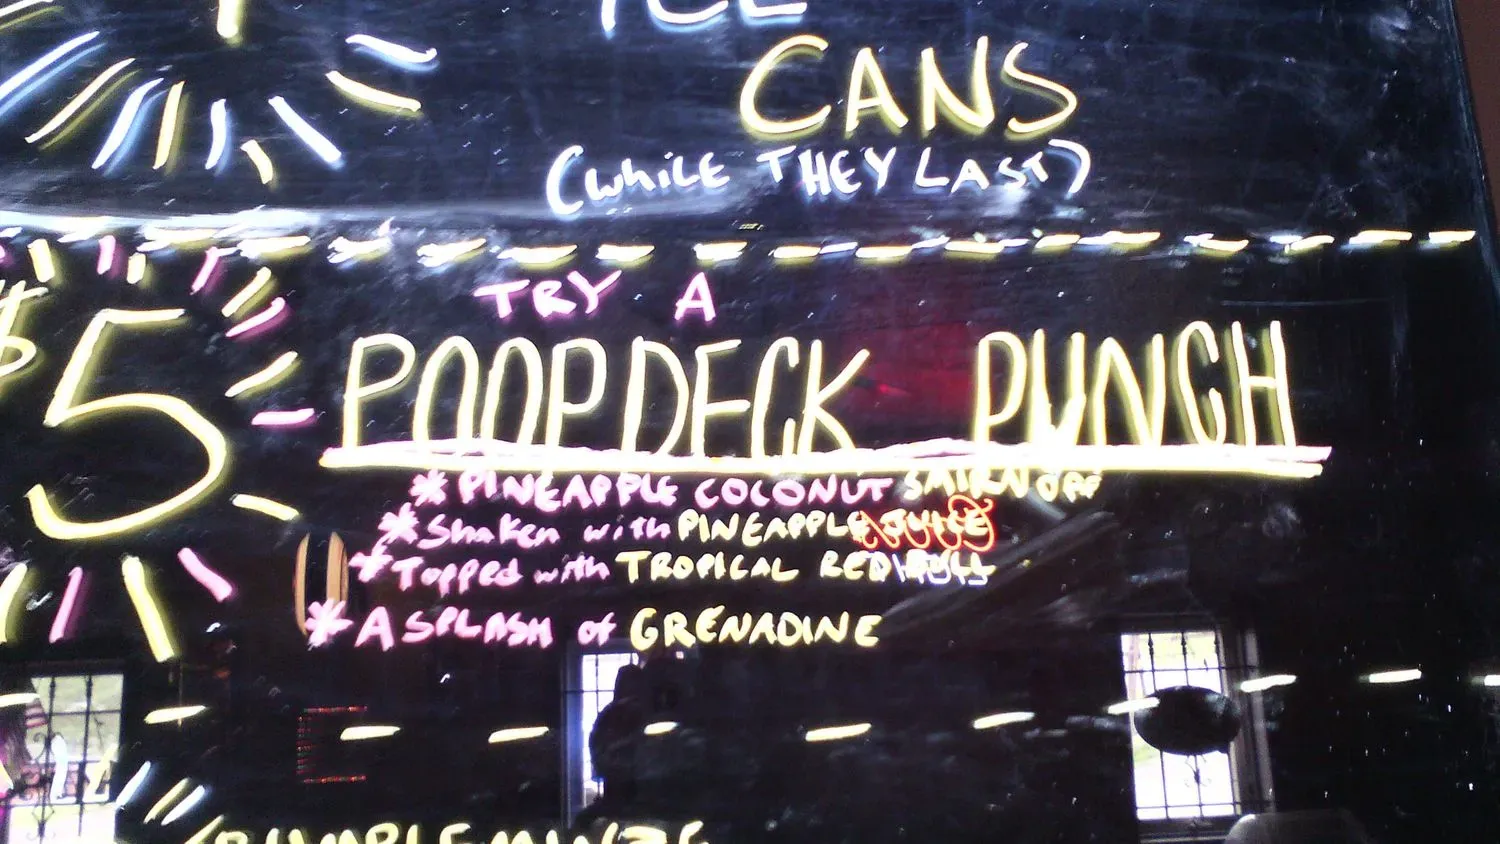 ICE
CANS
(WHILE THEY LAST)
TRY A
$5 POOPDECK PUNCH
* PINEAPPLE COCONUT SMIRNOFF
* Shaken with PINEAPPLE JUICE
* Topped with TROPICAL RED BULL
* A SPLASH of GRENADINE